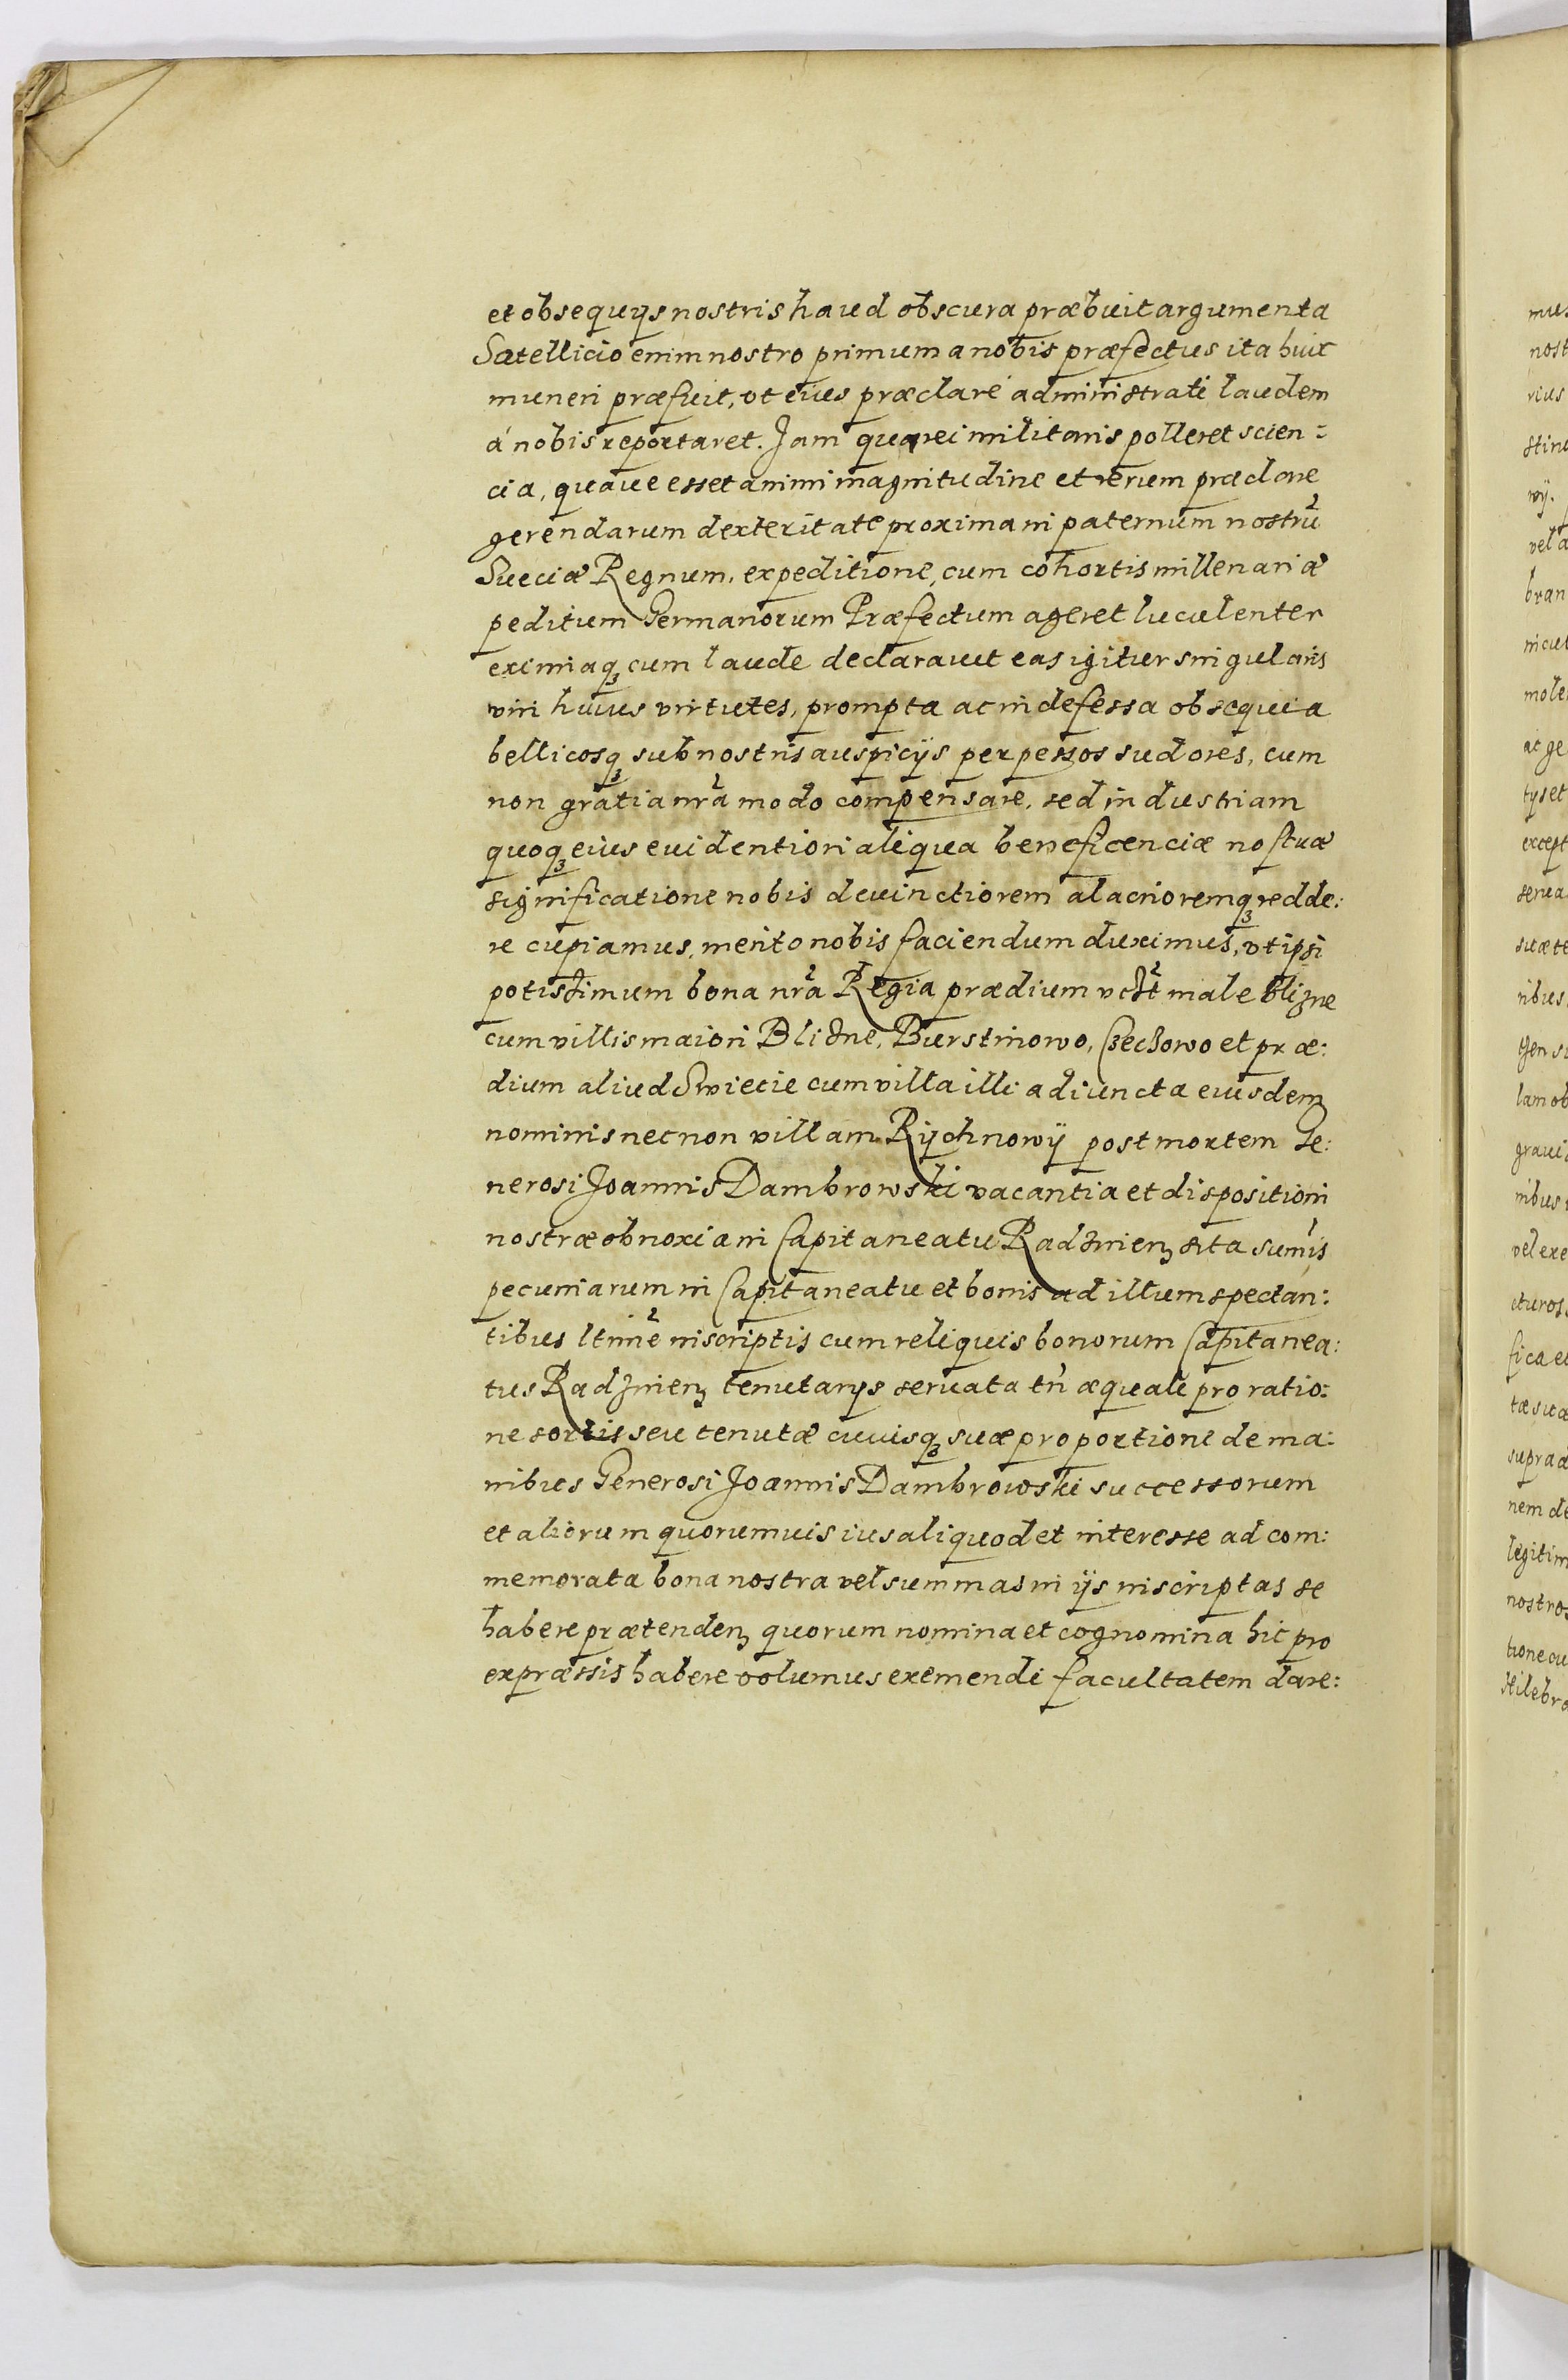 et obsequys nostris haud obscura præbuit argumenta
Satellicio enim nostro primum a nobis præfectus ita huic
muneri præfuit, vt eius præclaré administrati laudem
á nobis reportaret. Jam qua rei militaris polleret scien=
cia, quaue esset animi magnitudine et rerum præclare
gerendarum dexteritate proxima in paternum nostrũ
Sueciæ Regnum, expeditione, cum cohortis millenariæ
peditum Germanorum Præfectum ageret luculenter
eximiaqꝫ cum laude declarauit eas igitur singularis
viri huius virtutes, prompta ac indefessa obsequia
bellicosqꝫ sub nostris auspicijs perpessos sudores, cum
non grãtia nrã modo compensare, sed industriam
quoqꝫ eius euidentiori aliqua beneficenciæ nostræ
significatione nobis deuinctiorem alacrioremqꝫ redde:
re cupiamus, merito nobis faciendum duximus, vt ipsi
potissimum bona nrã Regia prædium male Blizne
cum villis maiori Blidne, Burstinowo, Czeczowo et præ:
dium aliud Swiecie cum villa illi adiuncta eiusdem
nominis necnon villam Rijchnowij post mortem Ge:
nerosi Joannis Dambrowski vacantia et dispositioni
nostræ obnoxia in Capitaneatu Radzinenꝫ sita sum̃is
pecuniarum in Capitaneatu et bonis ad illum spectan:
tibus ltimẽ inscriptis cum reliquis bonorum Capitanea:
tus Radzinenꝫ tenutarys seruata tñ æquali pro ratio:
ne sortis seu tenutæ cuiusqꝫ suæ proportione de ma:
nibus Generosi Joannis Dambrowski successorum
et aliorum quorumuis ius aliquod et interesse ad com:
memorata bona nostra vel summas in ijs inscriptas se
habere prætendenꝫ quorum nomina et cognomina hic pro
expræssis habere volumus eximendi facultatem dare: